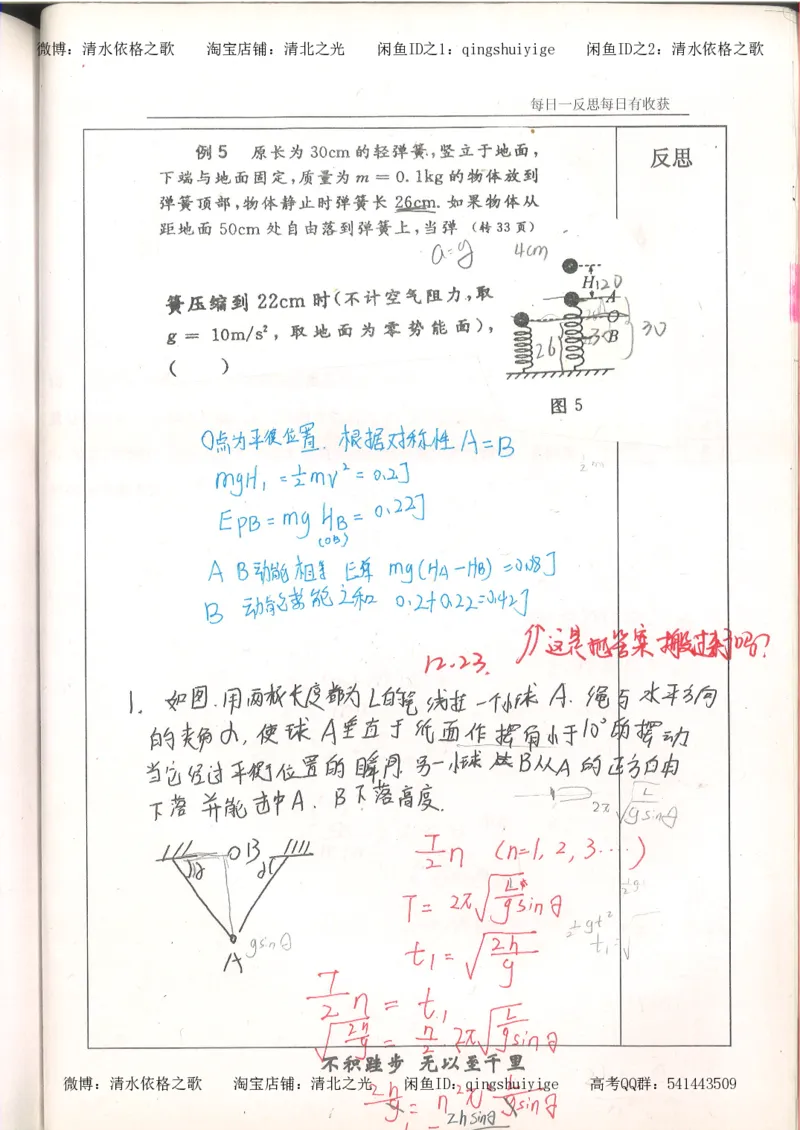 微博：清水依格之歌 淘宝店铺：清北之光 闲鱼ID之1：qingshuiyige 闲鱼ID之2：清水依格之歌
每日一反思每日有收获
例5 原长为30cm的轻弹簧，竖立于地面，
反思
下端与地面固定，质量为m＝0.1kg的物体放到
弹簧顶部，物体静止时弹簧长26cm. 如果物体从
距地面50cm处自由落到弹簧上，当弹（转33页）
a=g 4cm
簧压缩到22cm时（不计空气阻力，取
g＝10m/s²，取地面为零势能面），
（ ）
H₁ 20
A
O
B
26
30
30
图5
O点为平衡位置. 根据对称性A=B
mgH₁=½mv²=0.2J
E_PB=mgH_B=0.22J
(OB)
A B动能相等 mg(H_A-H_B)=0.08J
B 动能势能之和 0.2+0.22=0.42J
这是把答案搬过来了吗?
12.23.
1. 如图.用两根长度都为L的绳线拉一个小球A. 绳与水平方向
的夹角α, 使球A垂直于纸面作摆角小于10°的摆动
当它经过平衡位置的瞬间. 另一小球B从A的正方向由
下落 并能击中A. B下落高度.
2π√(L/gsinθ)
OB
α
α
A
gsinθ
T/2 n (n=1, 2, 3...)
T=2π√(L/gsinθ)
½gt²
t₁=√(2h/g)
t₁=√
T/2 n = t₁
√(2h/g) = n/2 · 2π√(L/gsinθ)
不积跬步 无以至千里
微博：清水依格之歌 淘宝店铺：清北之光 闲鱼ID：qingshuiyige 高考QQ群：541443509
2h/g = n²π² L/gsinθ
2hsinθ